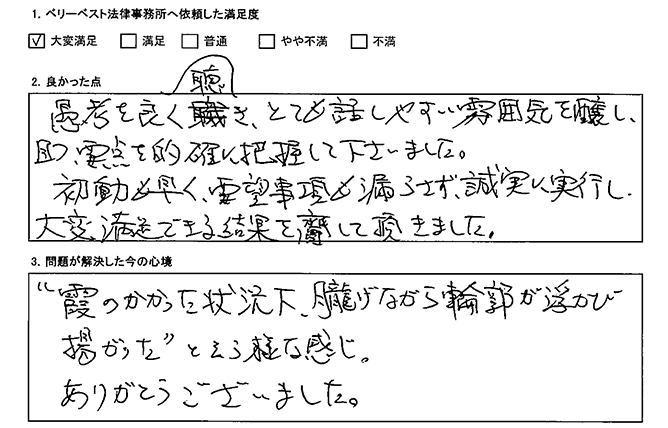 1. ベリーベスト法律事務所へ依頼した満足度
☑ 大変満足 □ 満足 □ 普通 □ やや不満 □ 不満
2. 良かった点
聴
愚考を良く聴き、とても話しやすい雰囲気を醸し、
且つ、要点を的確に把握して下さいました。
初動も早く、要望事項も漏らさず、誠実に実行し、
大変満足できる結果を齎して頂きました。
3. 問題が解決した今の心境
“霞のかかった状況下、朧げながら輪郭が浮かび
揚がった”という様な感じ。
ありがとうございました。